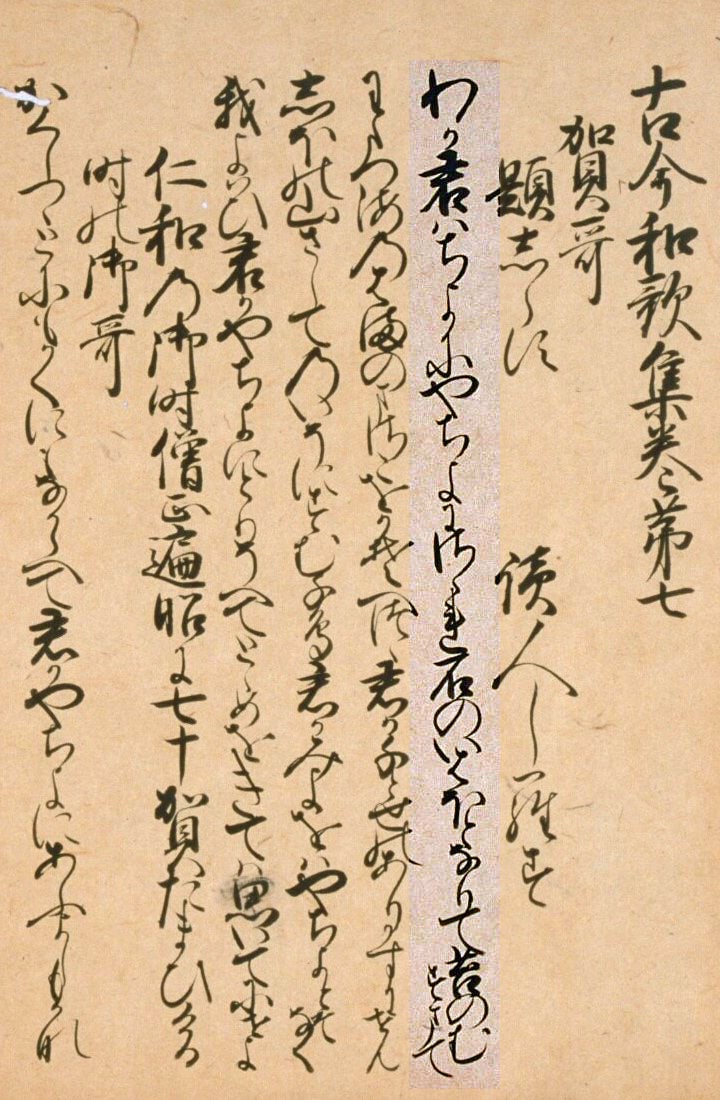 古今和歌集巻第七
賀哥
題志らす　読人しらす
わか君はちよにやちよにさゝれ石のいはほとなりて苔のむすまて
わたつ海のはまのまさこをかそへつゝ君かちとせのありかすにせん
志ほの山さしてのいそにすむ千鳥君かみよをはやちよとそなく
我よはひ君かやちよにとりそへてとゝめをきては思いてにせよ
仁和の御時僧正遍昭に七十賀たまひける
時の御哥
かくしつゝとにもかくにもなからへて君かやちよにあふよしもかな